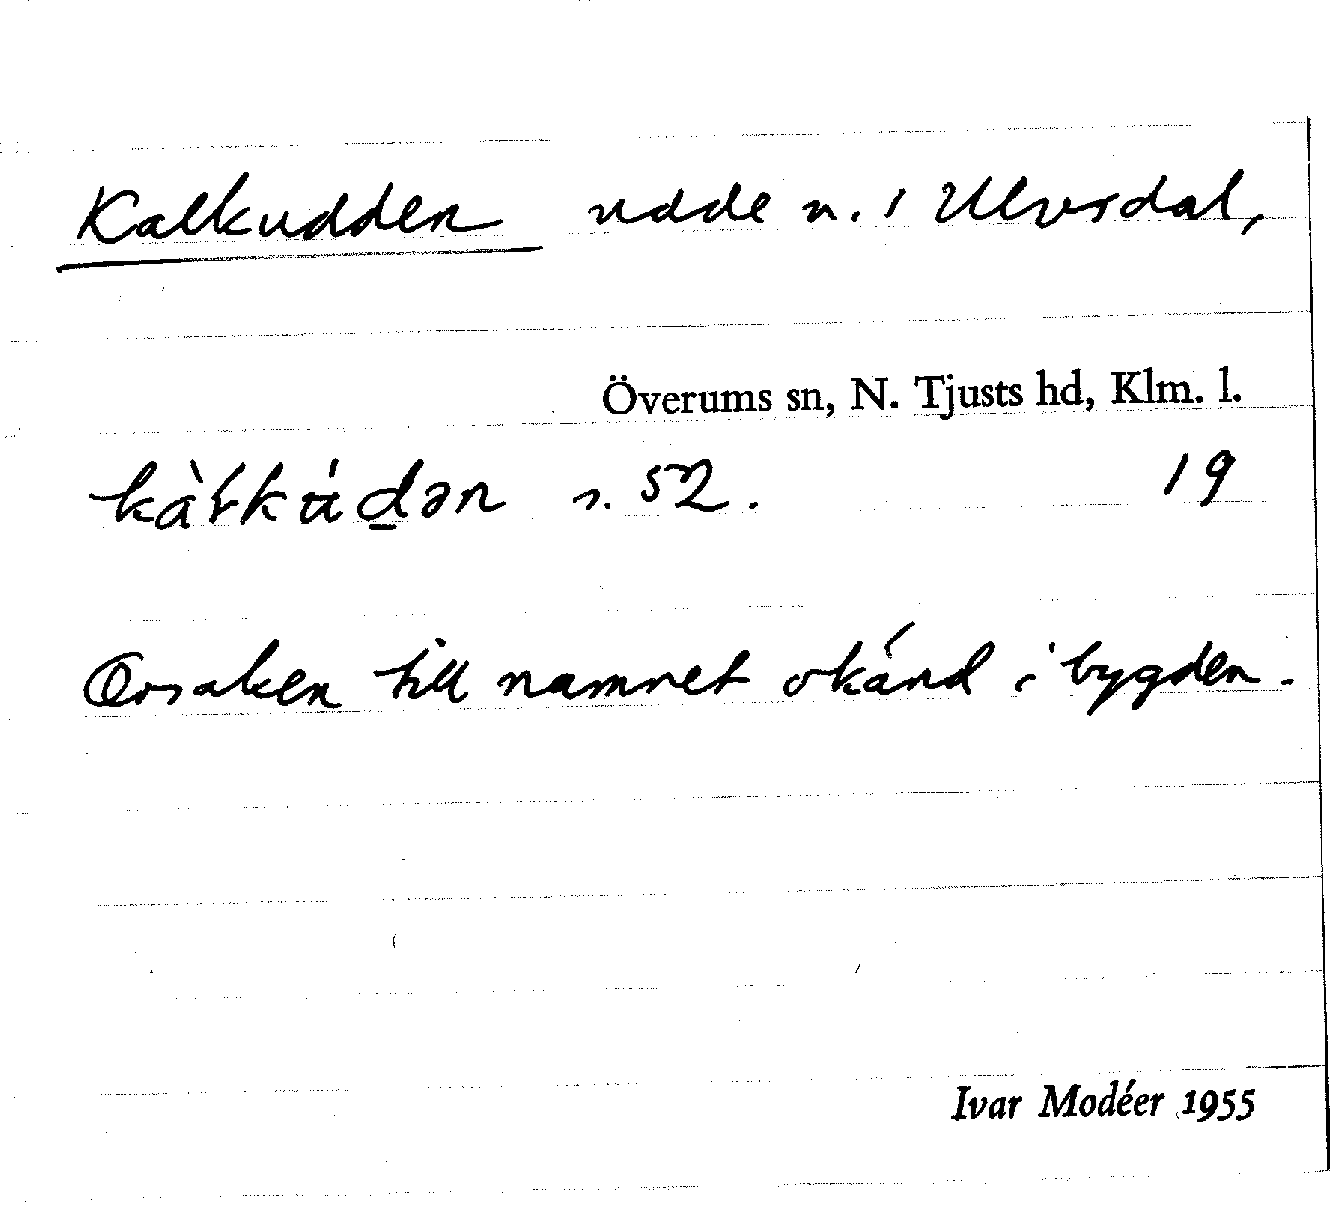 Kalkudden udde n. 1 Ulvsdal,
Överums sn, N. Tjusts hd, Klm. l.
s. 52. 19
Orsaken till namnet okänd i bygden.
Ivar Modéer 1955